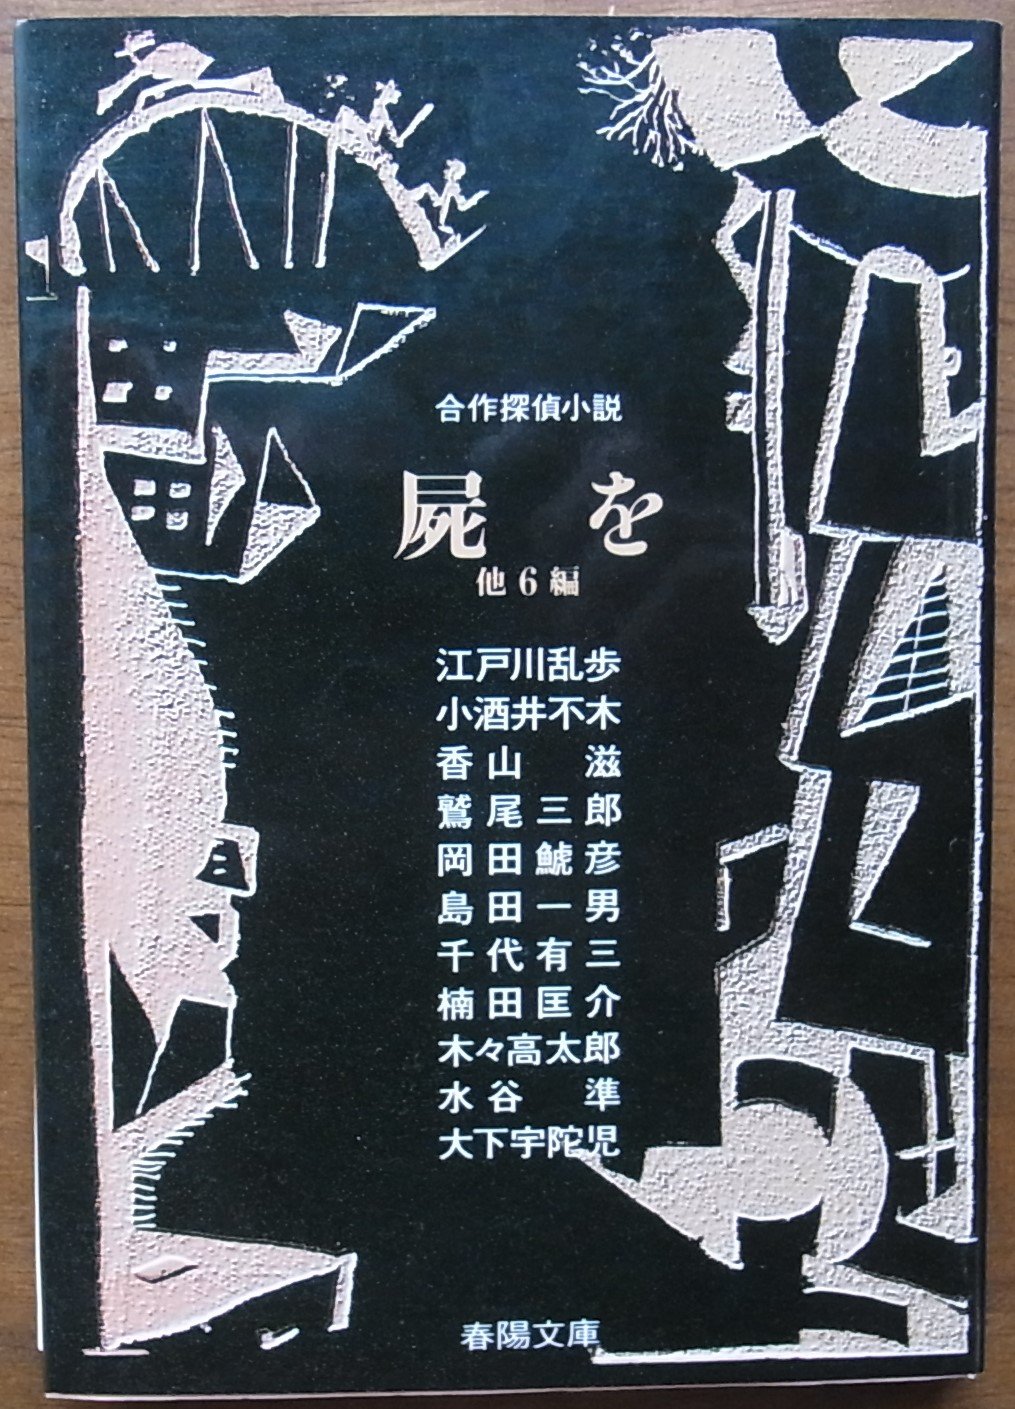 合作探偵小説
屍を
他6編
江戸川乱歩
小酒井不木
香山滋
鷲尾三郎
岡田鯱彦
島田一男
千代有三
楠田匡介
木々高太郎
水谷準
大下宇陀児
春陽文庫